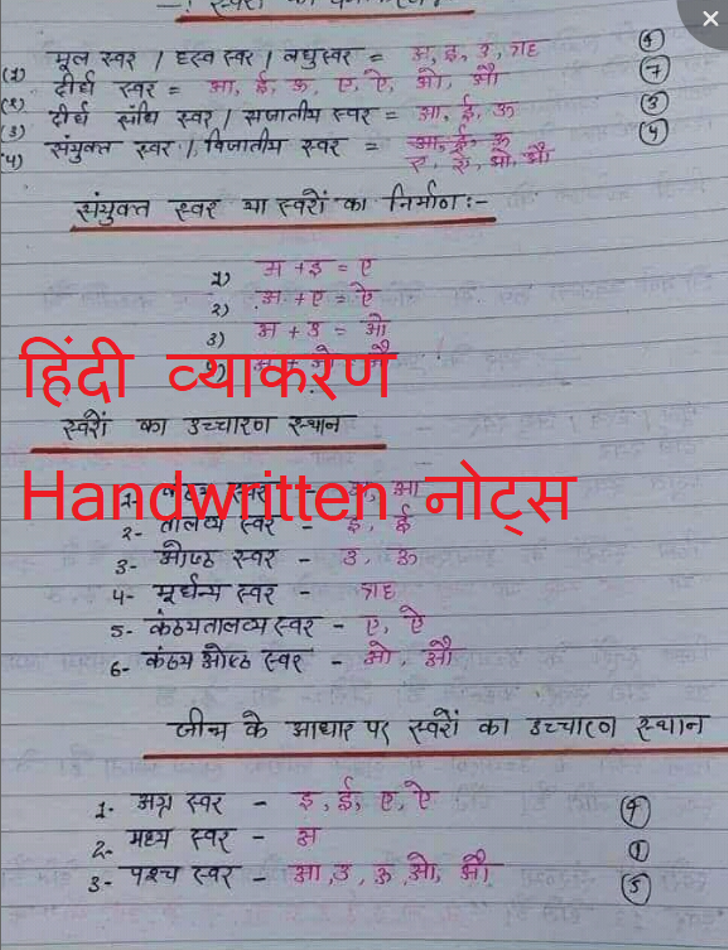 स्वरों का वर्गीकरण
(1) मूल स्वर / ह्रस्व स्वर / लघुस्वर = अ, इ, उ, ऋ (4)
(2) दीर्घ स्वर = आ, ई, ऊ, ए, ऐ, ओ, औ (7)
(3) दीर्घ संधि स्वर / सजातीय स्वर = आ, ई, ऊ (3)
(4) संयुक्त स्वर / विजातीय स्वर = आ, ई, ऊ (4)
ए, ऐ, ओ, औ
संयुक्त स्वर या स्वरों का निर्माण :-
1) अ + इ = ए
2) अ + ए = ऐ
3) अ + उ = ओ
4) अ + ओ = औ
हिंदी व्याकरण
स्वरों का उच्चारण स्थान
1- कंठ्य स्वर - अ, आ
Handwritten नोट्स
2- तालव्य स्वर - इ, ई
3- ओष्ठ स्वर - उ, ऊ
4- मूर्धन्य स्वर - ऋ
5- कंठयतालव्य स्वर - ए, ऐ
6- कंठय ओष्ठ स्वर - ओ, औ
जीभ के आधार पर स्वरों का उच्चारण स्थान
1- अग्र स्वर - इ, ई, ए, ऐ (4)
2- मध्य स्वर - अ (1)
3- पश्च स्वर - आ, उ, ऊ, ओ, औ (5)